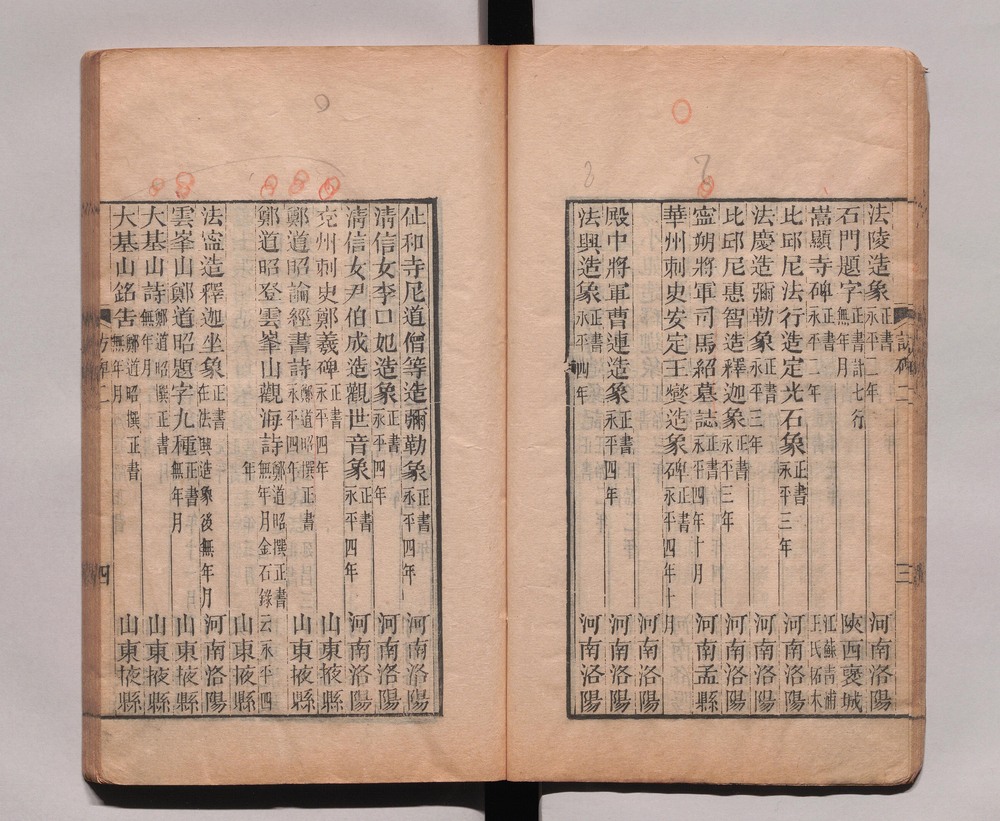 法陵造象 正書 永平二年 河南洛陽
石門題字 正書計七行 無年月 陝西褒城
嵩顯寺碑 正書 永平二年 江蘇青浦王氏拓本
比邱尼法行造定光石象 正書 永平三年 河南洛陽
法慶造彌勒象 正書 永平三年 河南洛陽
比邱尼惠智造釋迦象 正書 永平三年 河南洛陽
寍朔將軍司馬紹墓誌 正書 永平四年十月 河南孟縣
華州刺史安定王燮造象碑 正書 永平四年十月
河南洛陽
殿中將軍曹連造象 正書 永平四年 河南洛陽
法興造象 正書 永平四年 河南洛陽
訪碑二
三
仙和寺尼道僧等造彌勒象 正書 永平四年 河南洛陽
清信女李口妃造象 正書 永平四年 河南洛陽
清信女尹伯成造觀世音象 正書 永平四年 河南洛陽
兗州刺史鄭羲碑 正書 永平四年 山東掖縣
鄭道昭論經書詩 鄭道昭撰正書 永平四年 山東掖縣
鄭道昭登雲峯山觀海詩 鄭道昭撰正書 無年月金石錄云永平四
年 山東掖縣
法寍造釋迦坐象 正書 在法興造象後無年月 河南洛陽
雲峯山鄭道昭題字九種 正書 無年月 山東掖縣
大基山詩 鄭道昭撰正書 無年月 山東掖縣
大基山銘告 鄭道昭撰正書 無年月 山東掖縣
訪碑二
四